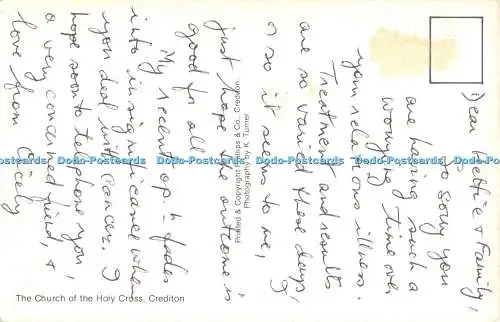 Dear Hettie & Family,
So sorry you
are having such a
worrying time over
your relations illness.
Treatment and results
are so varied these days,
or so it seems to me, I
just hope the outcome is
good for all.
My recent op.n fades
into insignificance when
you deal with Cancer. I
hope soon to telephone you,
a very concerned friend, &
love from Cicely
Printed & Copyright Phillips & Co. Crediton.
Photography by K. Turner
The Church of the Holy Cross, Crediton
Dodo-Postcards Dodo-Postcards Dodo-Postcards Dodo-Postcards Dodo-Postcards